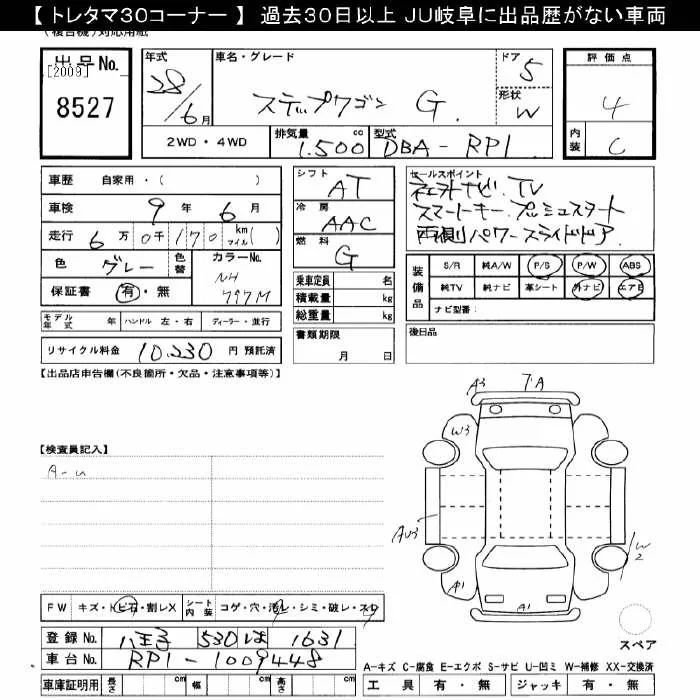 【 トレタマ30コーナー 】 過去30日以上 JU岐阜に出品歴がない車両
(複合機)対応用紙
出品No. [2009] 8527
年式 28/6月
車名・グレード ステップワゴン G
ドア 5
形状 W
評価点 4
内装 C
2WD・4WD
排気量 1.500 cc
型式 DBA-RP1
車歴 自家用・( )
車検 9年 6月
走行 6万0千170 km マイル( )
色 グレー 色替 カラーNo. NH 797M
保証書 有・無
シフト AT
冷房 AAC
燃料 G
乗車定員 名
積載量 kg
総重量 kg
セールスポイント
ギャザズナビ、TV
スマートキー プッシュスタート
両側パワースライドドア
装備品 S/R 純A/W P/S P/W ABS
純TV 純ナビ 革シート 外ナビ エアB
ナビ型番:
モデル年式 年 ハンドル 左・右 ディーラー・並行
書類期限 月 日
後日品
リサイクル料金 10.230 円 預託済
【出品店申告欄(不良箇所・欠品・注意事項等)】
A3 フA
W3
【検査員記入】
A-u
AU3
W2
A1 A1
FW キズ・トビ石・割レX シート内装 コゲ・穴・汚レ・シミ・破レ・スレ
スペア
登録No. 八王子 530 ほ 1631
車台No. RP1-1009448
A-キズ C-腐食 E-エクボ S-サビ U-凹ミ W-補修 XX-交換済
車庫証明用 長さ cm 幅 cm 高さ cm 工具 有・無 ジャッキ 有・無